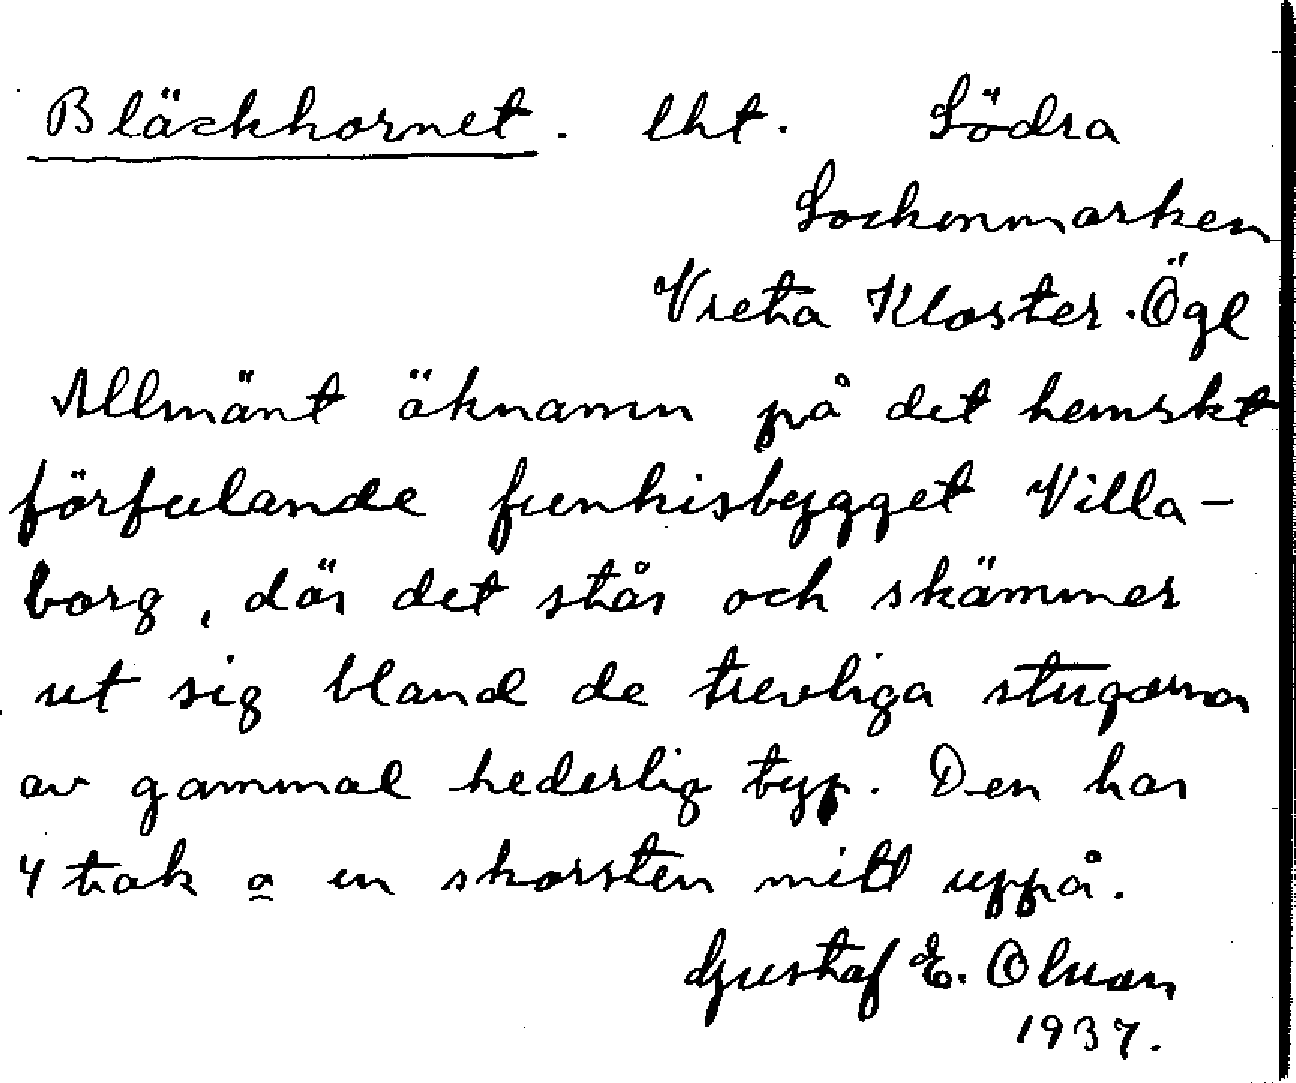 Bläckhornet. lht. Södra
Sockenmarken
Vreta Kloster. Ögl
Allmänt öknamn på det hemskt
förfulande funkisbygget Villa-
borg, där det står och skämmer
ut sig bland de trevliga stugorna
av gammal hederlig typ. Den har
4 tak o en skorsten mitt uppå.
Gustaf E. Olson
1937.